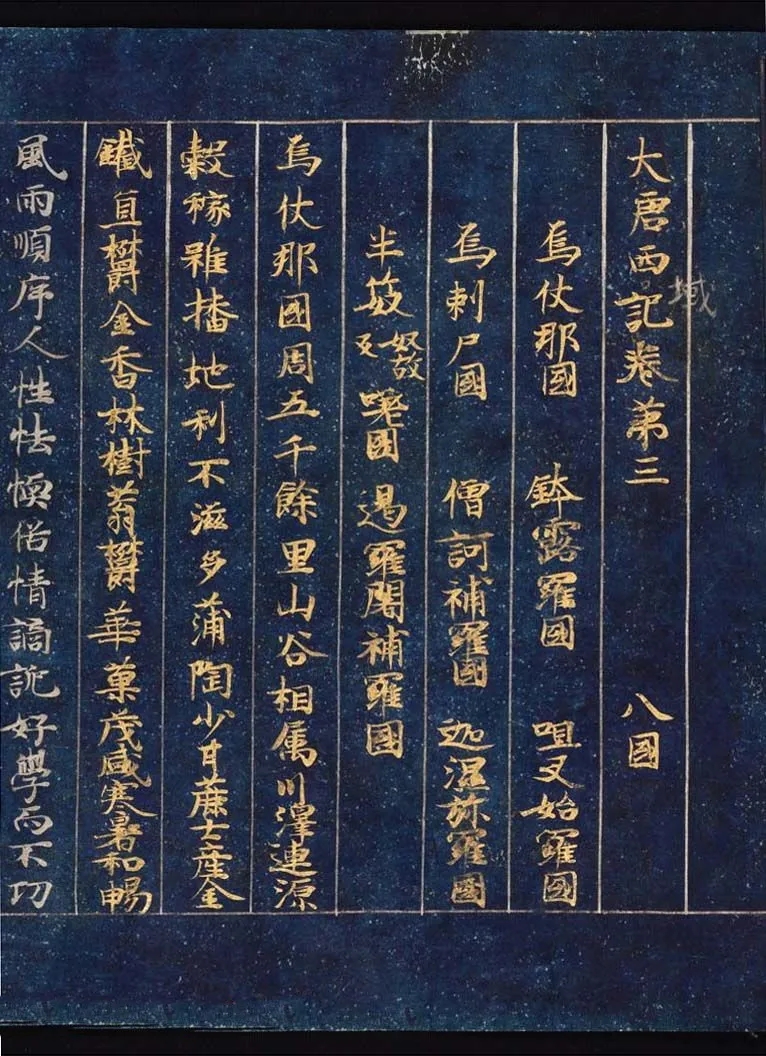 大唐西域記卷第三 八國
烏仗那國 鉢露羅國 呾叉始羅國
烏剌尸國 僧訶補羅國 迦濕弥羅國
半笯奴故反嗟國 遏羅闍補羅國
烏仗那國周五千餘里山谷相属川澤連源
穀稼雖播地利不滋多蒲陶少甘蔗土產金
鐵宜欝金香林樹蓊欝華菓茂盛寒暑和暢
風雨順序人性怯愞俗情譎詭好學而不功